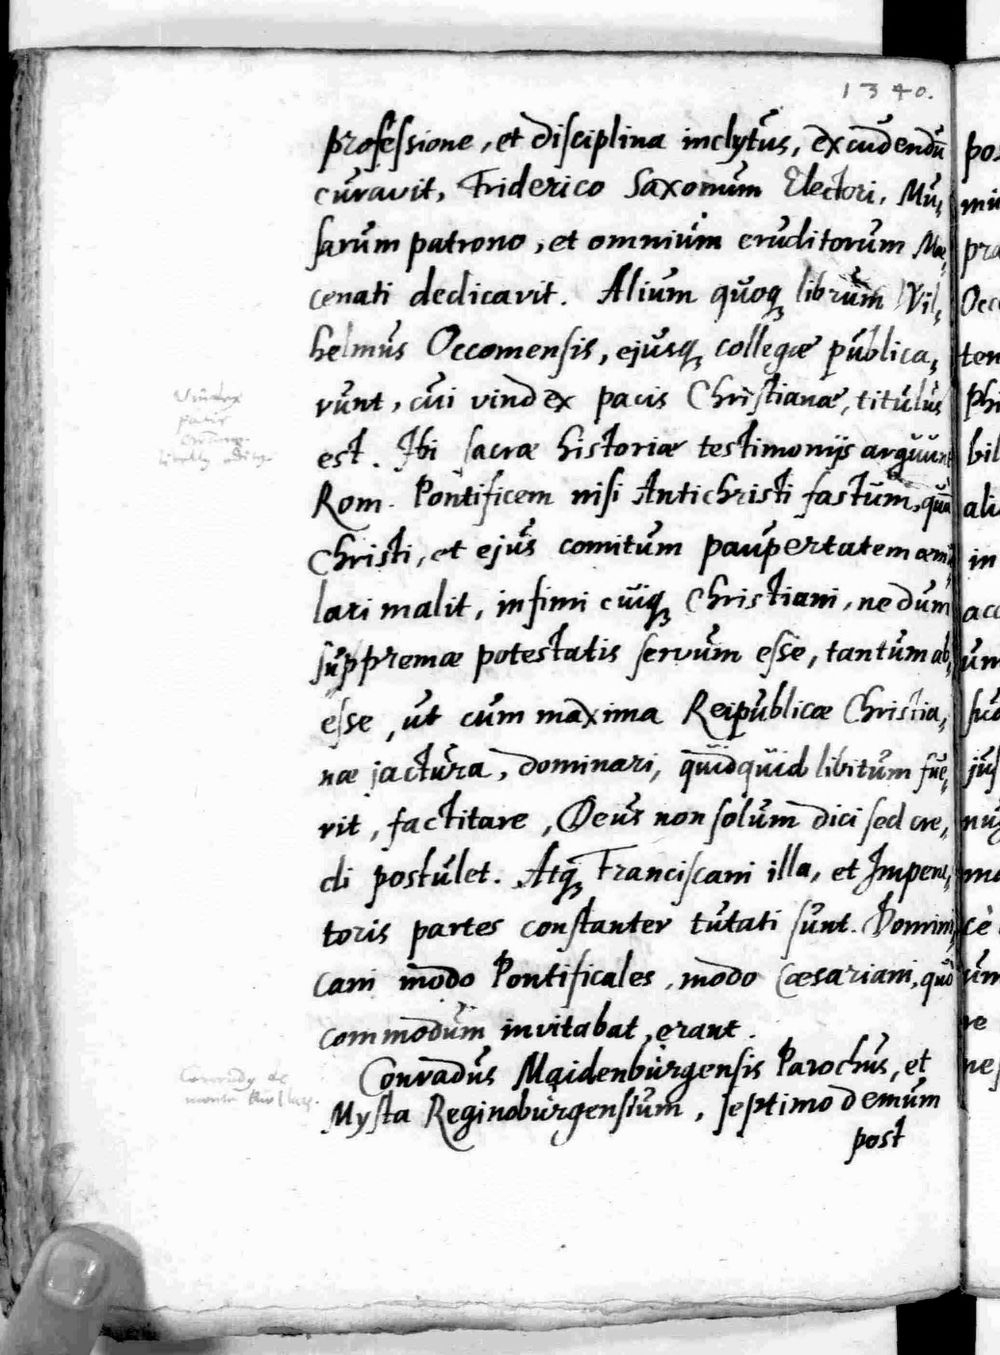 1340.
professione, et disciplina inclytus, excudendū
curavit, Friderico Saxonum Electori, Mu,
sarum patrono, et omnium eruditorum Mæ,
cenati dedicavit. Alium quoq librum Vil,
helmus Occomensis, ejusq collegæ publica,
runt, cui vindex pacis Christianæ, titulus
est. Ibi sacræ historiæ testimonijs arguunt
Rom. Pontificem nisi Antichristi fastum, quā
Christi, et ejus comitum paupertatem æmu
lari malit, infimi cuiq Christiani, nedum
suppremæ potestatis servum esse, tantum ab,
esse, ut cum maxima Reipublicæ Christia,
næ jactura, dominari, quidquid libitum fue,
rit, factitare, Deus non solum dici sed cre,
di postulet. Atq Franciscani illa, et Impera,
toris partes constanter tutati sunt. Domini,
cani modo Pontificales, modo Cæsariani, quo
commodum invitabat, erant.
Conradus Maidenburgensis Parochus, et
Mysta Reginoburgensium, septimo demum
post
Vindex
pacis